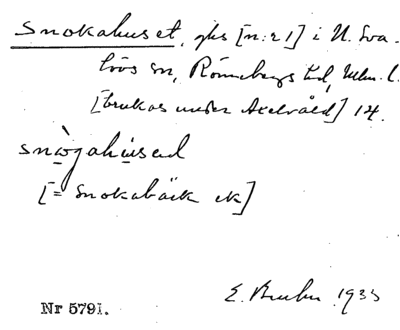 Snokahuset, ghs [nr 21] i N. Sva-
löv sn, Rönnebergs hd, Mlm. l.
[brukas under Axelvåld] 14.
snògahused
[= Snokabäck ek]
E. Bruhn 1933
Nr 5791.